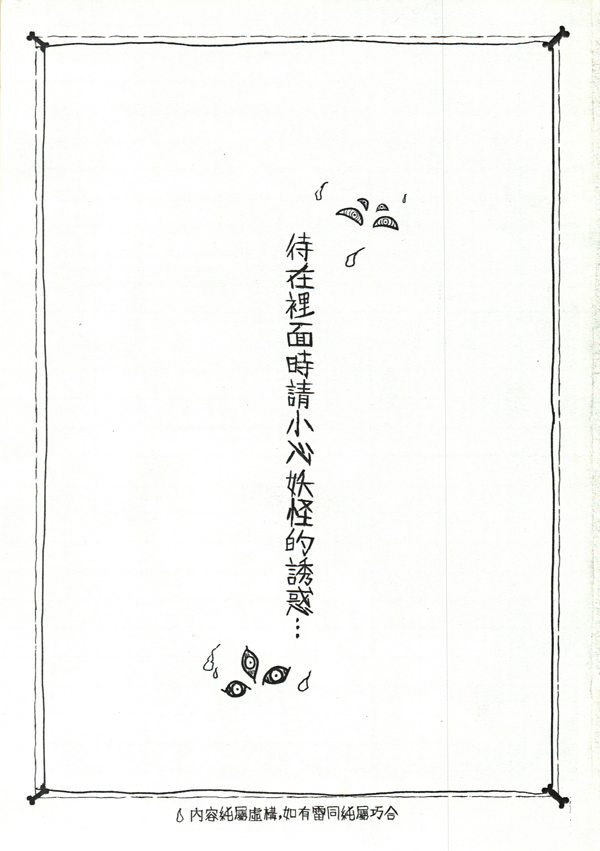 待在裡面時請小心妖怪的誘惑…
內容純屬虛構,如有雷同純屬巧合